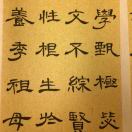 學甄極毖
文不綜賢
性根生於
養季祖母